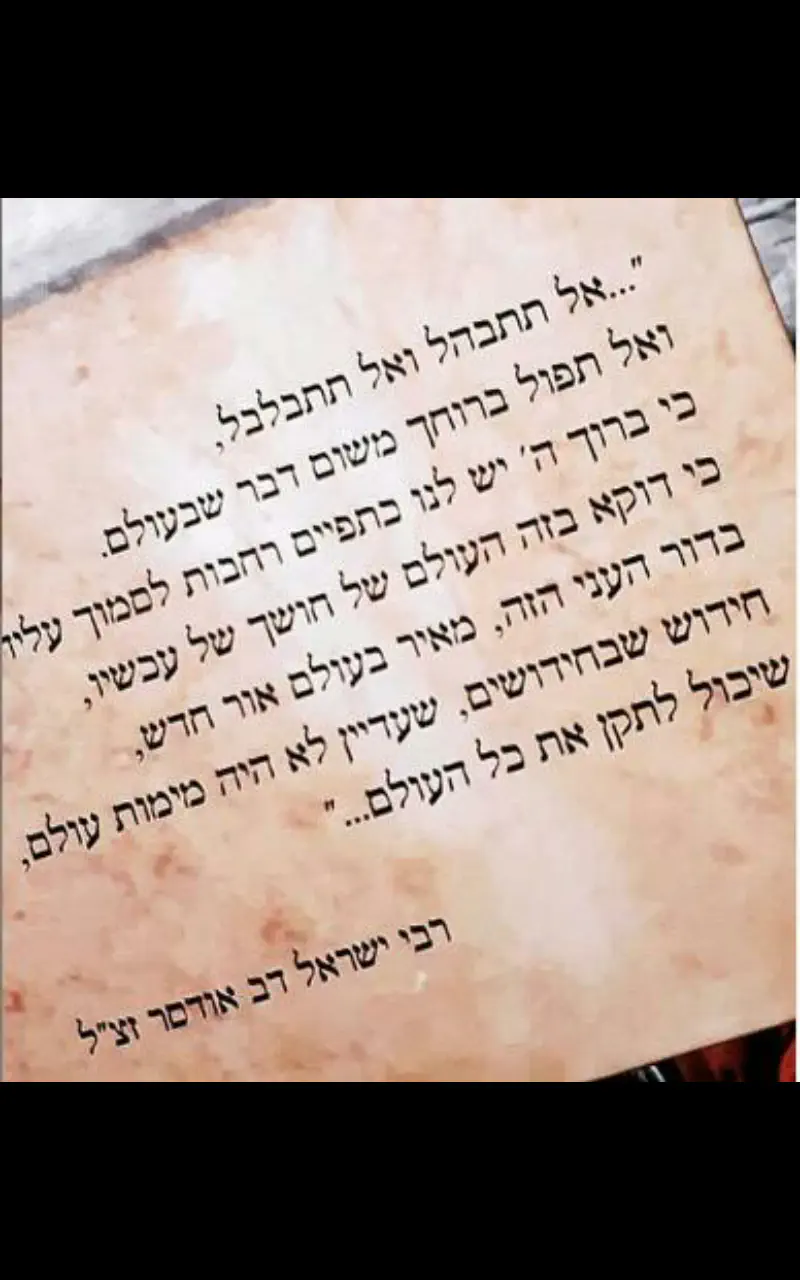 "...אל תתבהל ואל תתבלבל,
ואל תפול ברוחך משום דבר שבעולם.
כי ברוך ה' יש לנו כתפיים רחבות לסמוך עליו
כי דוקא בזה העולם של חושך של עכשיו,
בדור העני הזה, מאיר בעולם אור חדש,
חידוש שבחידושים, שעדיין לא היה מימות עולם,
שיכול לתקן את כל העולם..."
רבי ישראל דב אודסר זצ"ל